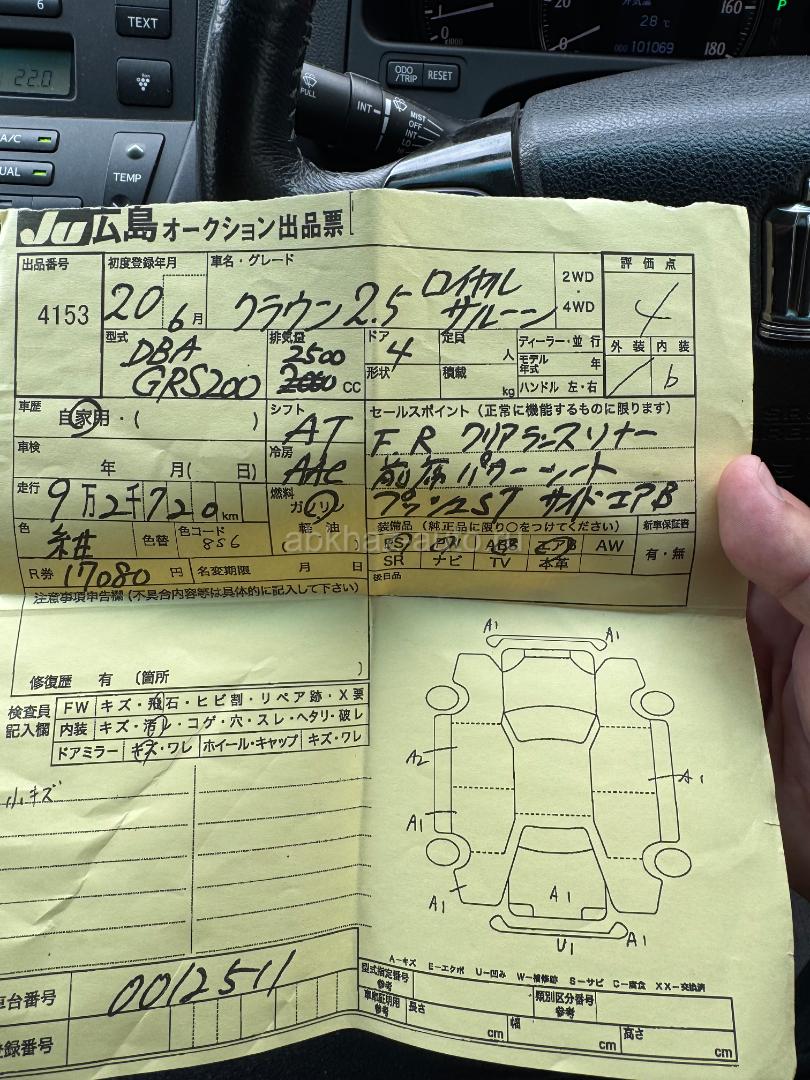 6
TEXT
22.0
A/C
UAL
TEMP
PULL
INT
MIST
OFF
INT
LO
ODO
/TRIP
RESET
0
x1000
20
0
外気温
28℃
ODO 101069
160
180
P
JU 広島オークション出品票
出品番号
4153
初度登録年月
20 6月
車名・グレード
クラウン2.5 ロイヤル
サルーン
2WD
・
4WD
評価点
4
型式
DBA
GRS200
排気量
2500
2000 CC
ドア
4
形状
定員
人
積載
kg
ディーラー・並行
モデル年式 年
ハンドル 左・右
外装 内装
b
車歴
自家用・( )
シフト
AT
セールスポイント(正常に機能するものに限ります)
F.R クリアランスソナー
前席パワーシート
プッシュST サイドエアB
車検
年 月( 日)
冷房
AAC
走行
9万2千720km
燃料
ガソリン
軽油
色
色替
色コード
装備品(純正品に限り○をつけてください)
新車保証書
PS PW ABS エアB AW
SR ナビ TV 本革
有・無
R券
17080円
名変期限 月 日
後日品
注意事項申告欄(不具合内容等は具体的に記入して下さい)
修復歴 有(箇所 )
検査員
記入欄
FW キズ・飛石・ヒビ割・リペア跡・X要
内装 キズ・汚れ・コゲ・穴・スレ・ヘタリ・破レ
ドアミラー キズ・ワレ ホイール・キャップ キズ・ワレ
小キズ
A1
A1
A2
A1
A1
A1
A1
U1
A1
A-キズ E-エクボ U-凹み W-補修跡 S-サビ C-腐食 XX-交換済
車台番号
0012511
登録番号
型式指定番号
参考
類別区分番号
参考
車庫証明用
参考
長さ
cm
幅
cm
高さ
cm
apkhasabayo.id